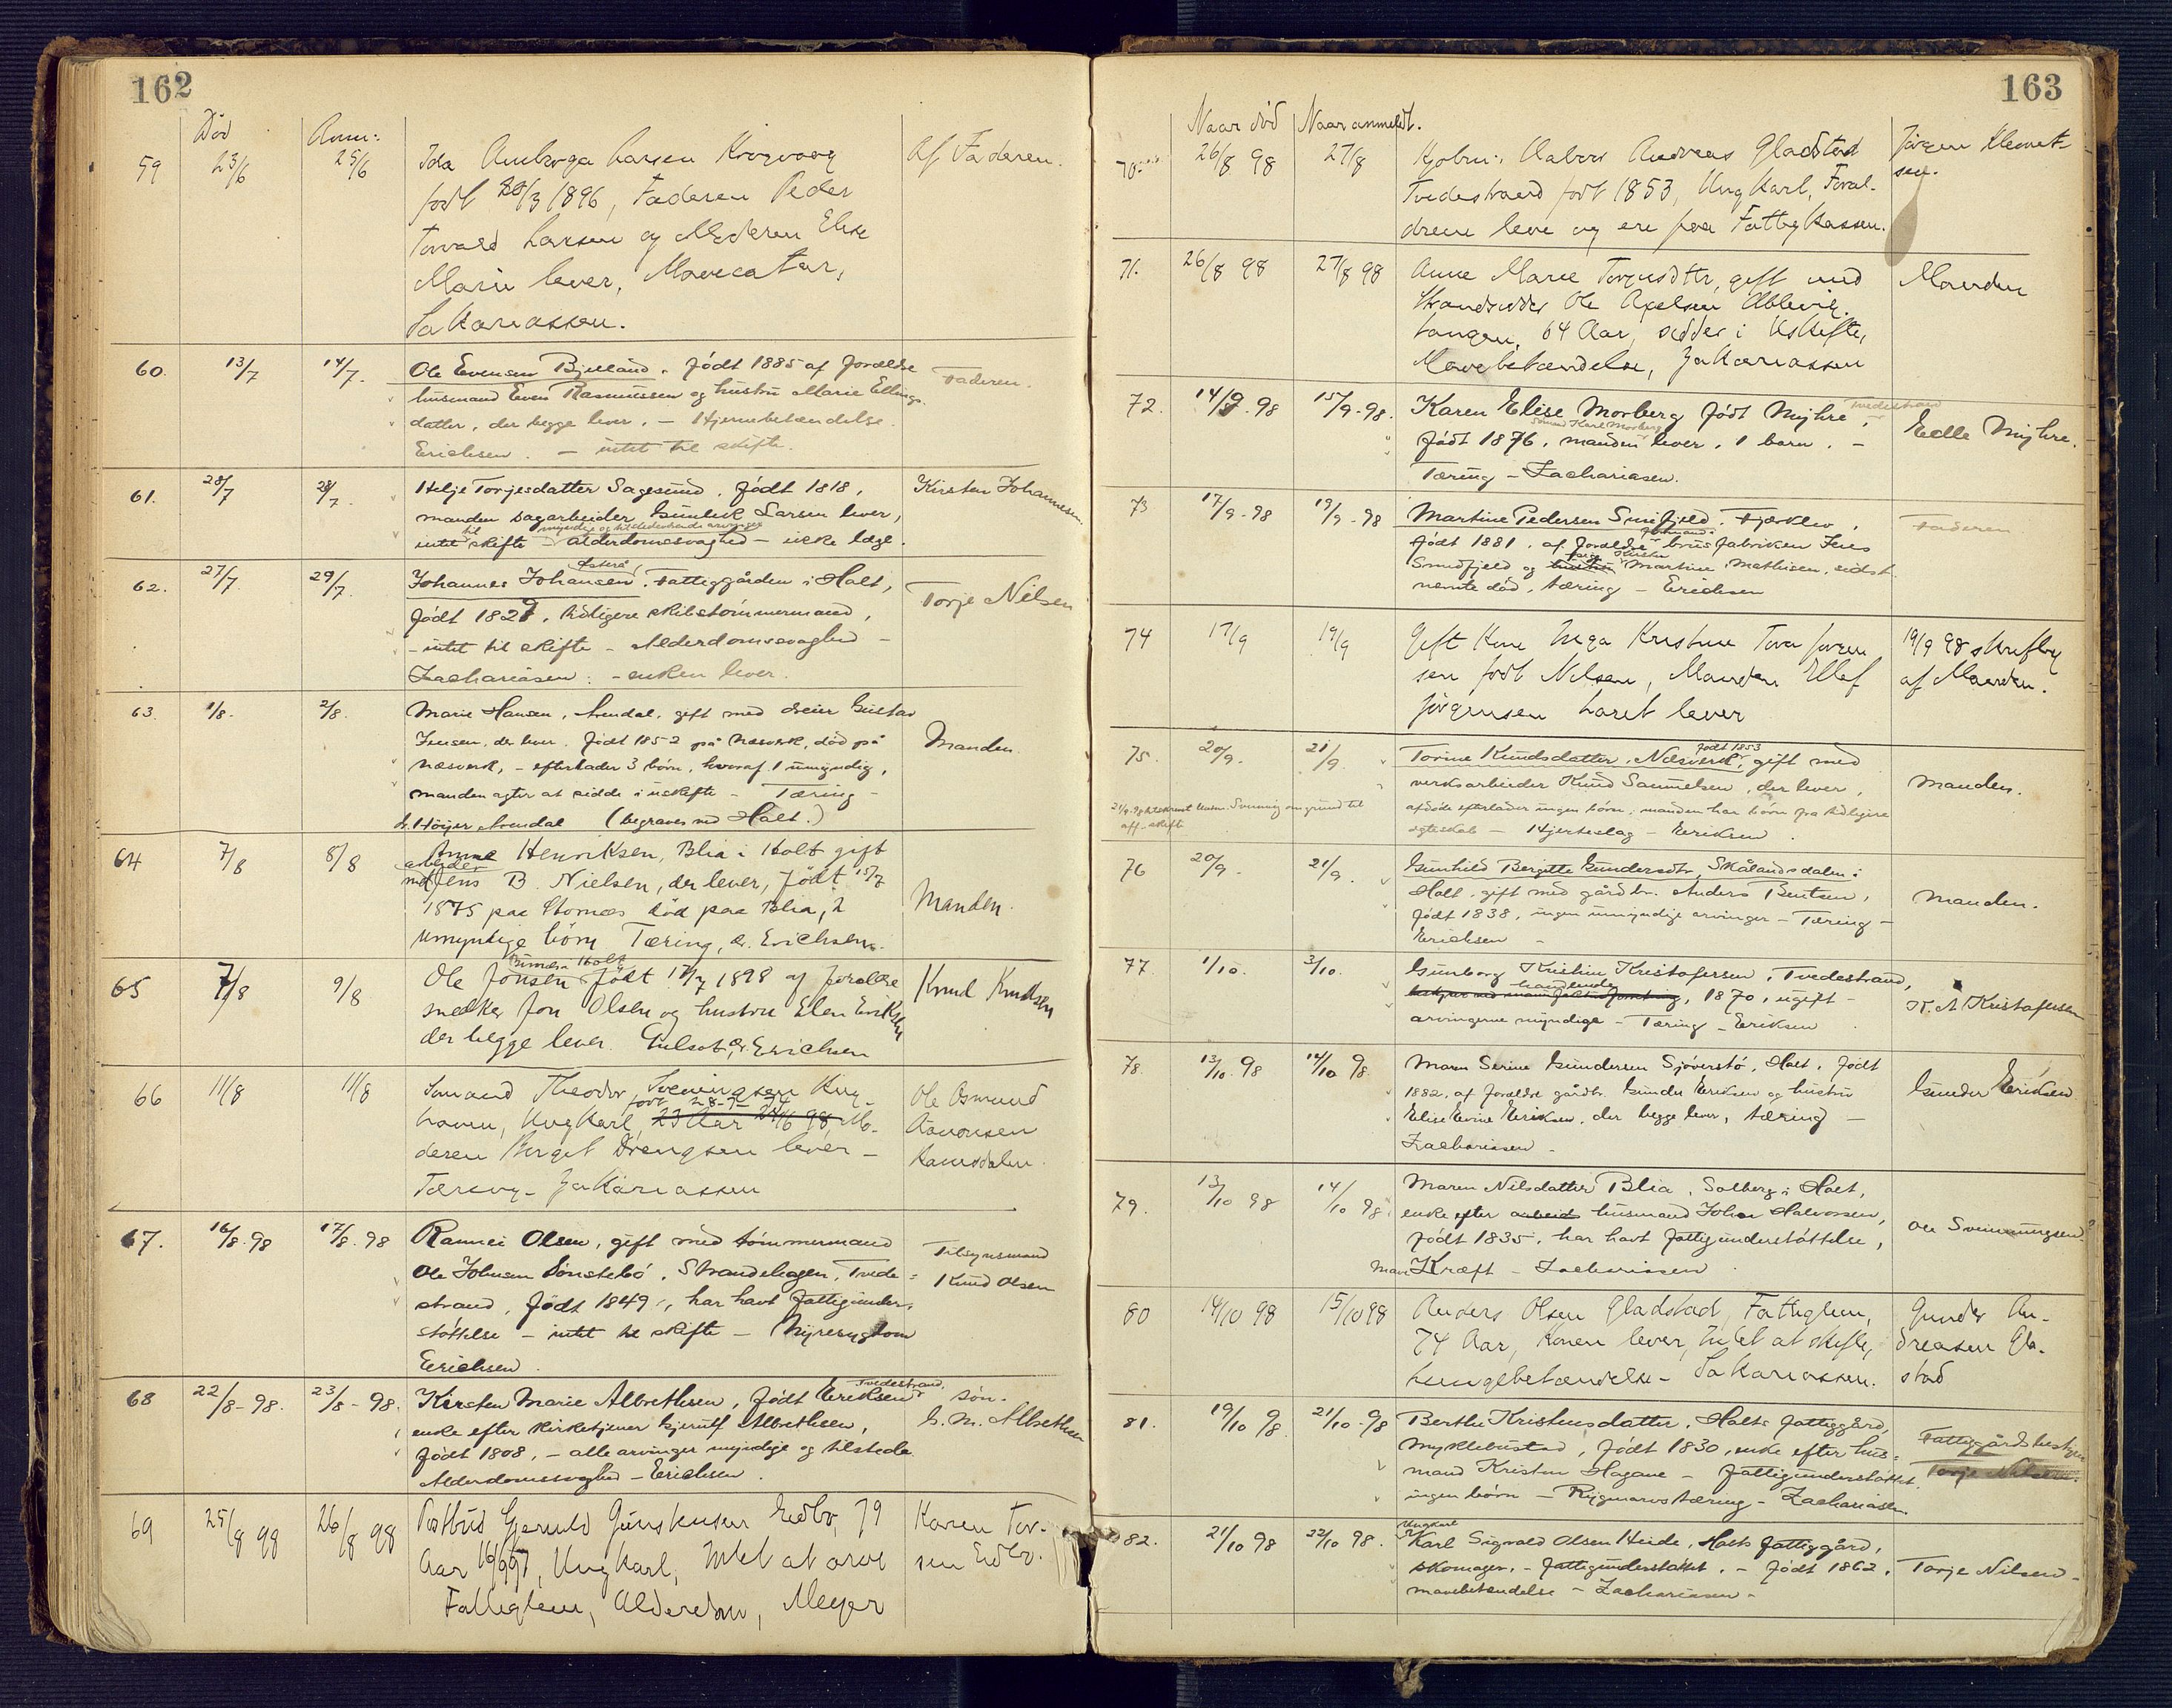 162
Død
Anm:
59
23/6
25/6
Ida Ambroga Larsen Krogvaag
født 20/3 1896, Faderen Peder
Torvald Larsen og Moderen Elise
Marie lever, Mavecatar,
Sakariassen.
Af Faderen.
60.
13/7
14/7.
Ole Evensen Bjelland. født 1885 af forældre
husmand Even Rasmussen og hustru Marie Ellings-
datter, der begge lever. - Hjernebetændelse.
Erichsen. - intet til skifte.
Faderen.
61.
28/7
28/7.
Helje Torjesdatter Sagesund. født 1818,
manden sagarbeider Gunlek Larsen lever,
myndige og tilstedeværende arvinger
intet til skifte - alderdomssvaghed - ikke læge.
Kirsten Johannesen.
62.
27/7.
29/7.
Østerå
Johannes Johansen. Fattiggården i Holt,
født 1829, tidligere skibstømmermand,
- intet til skifte - Alderdomssvaghed -
Zachariasen: - enken lever.
Torje Nilsen
63.
1/8.
2/8.
Marie Hansen, Arendal, gift med dreier Gustav
Jensen, der lever. født 1852 på Næsverk, død på
Næsverk, - efterlader 3 børn, hvoraf 1 umyndig,
manden agter at sidde i uskifte - Tæring -
dr. Høyer Arendal (begraves ved Holt.)
Manden.
64
7/8
8/8
Anne Henriksen, Blia i Holt gift
arbeider
med Jens B. Nielsen, der lever, født 15/7
1875 paa Stornæs død paa Blia, 2
umyndige børn Tæring, dr. Erichsen.
Manden.
65
7/8
9/8
Holt
Ole Jonsen født 17/7 1898 af forældre
snedker Jon Olsen og hustru Elen Eriksen
der begge lever. Gulsot, dr. Erichsen
Knud Knudsen
66
11/8
11/8
Sømand Theodor Sveningsen
født 28-7-74
Ungkarl, 23 Aar 24/6 98, Mo-
deren Birgit Drengsen lever -
Tæring - Zakariassen
Ole Osmund
Aanonsen
67.
16/8.98
17/8.98
Rannei Olsen, gift med tømmermand
Ole Johnsen Sønstebø. Strandehagen, Tvede-
strand, født 1849, har havt fattigunder-
støttelse - intet til skifte - Nyresygdom
Erichsen.
Tilsynsmand
Knud Olsen
68
22/8-98.
23/8-98.
Tvedestrand.
Kirsten Marie Albrethsen, født Eriksen
enke efter kirketjener Gjerulf Albrethsen,
født 1808, - alle arvinger myndige og tilstede.
Alderdomssvaghed - Erichsen.
søn.
G. M. Albrethsen
69
25/8 98
26/8 98
Postbud Gjeruld Gunstensen Eidbo, 79
Aar, Ungkarl, Intet at arve
Fattiglem, Alderdom, Meyer
Karen Tor-
sen Eidbo.
163
Naar død
Naar anmeldt.
70.
26/8 98
27/8
Andreas Gladstad
Tvedestrand født 1853, Ungkarl, Foræl-
drene leve og ere paa Fattigkassen.
Jørgen Klemet-
sen.
71.
26/8 98
27/8 98
Anne Marie Torjusdtr, gift med
Strandsidder Ole Axelsen Ablevig-
tangen, 64 Aar, sidder i Uskifte,
Mavebetændelse, Zakariassen
Manden
72.
14/9.98
15/9-98.
Tvedestrand
Karen Elise Morberg født Myhre,
sømand Karl Morberg
født 1876, manden lever. 1 barn. -
Tæring - Zachariasen.
Edle Myhre.
73
17/9-98
19/9-98
Martine Pedersen Snefjeld. Fjærklev,
født 1881. af forældre brusfabriken Jens
Smedfjeld og hustru Martine Mathisen, sidst-
nævnte død, tæring - Erichsen
Faderen
74
17/9
19/9
Gift Kone Inga Kristine Tora Jørgen-
sen født Nilsen, Manden Ellef
Jørgensen Laret lever
19/9 98 skriftlig
af Manden.
75.
20/9.
21/9.
født 1853
Torine Knudsdatter, Næsverk, gift med
verksarbeider Knud Samuelsen, der lever,
afdøde efterlader ingen børn; manden har børn fra tidligere
ægteskab - Hjerteslag - Eriksen.
Manden.
76
20/9.
21/9.
Gunhild Bergitte Gundersdtr, Skålandsdalen i
Holt, gift med gårdbr. Anders Bentsen,
født 1838, ingen umyndige arvinger - Tæring -
Erichsen -
Manden.
77
1/10.
3/10.
Gunborg Kristine Kristofersen, Tvedestrand,
handlende
1870, ugift -
arvingerne myndige - Tæring - Eriksen
K. A. Kristofersen
78.
13/10.98
14/10 98.
Maren Serine Gundersen Sjøverstø, Holt, født
1882, af forældre gårdbr. Gunder Eriksen og hustru
Elise Evine Eriksen, der begge lever, tæring -
Zachariasen -
Gunder Eriksen
79.
13/10 98
14/10 98.
Maren Nilsdatter Blia, Solberg i Holt,
enke efter arbeid husmand John Halvorsen,
født 1835, har havt fattigunderstøttelse,
Mave Kræft - Zachariasen
Ole Sveinungsen
80
14/10 98
15/10 98
Anders Olsen Gladstad, Fattiglem,
74 Aar, Konen lever, Intet at skifte,
Lungebetændelse - Sakariassen.
Gunder An-
dreasen Gla-
stad
81.
19/10 98
21/10.98
Berthe Kristensdatter, Holts fattiggård,
Myklebustad, født 1830, enke efter hus-
mand Kristen Hagane - fattigunderstøttet.
ingen børn - Rygmarvstæring - Zachariasen.
Fattiggårdsbestyrer
Torje Nilsen.
82.
21/10 98
22/10 98.
Ungkarl
Karl Sigvald Olsen Heide, Holts fattiggård,
skomager. - fattigunderstøttet. - født 1862.
mavebetændelse - Zachariasen -
Torje Nilsen -